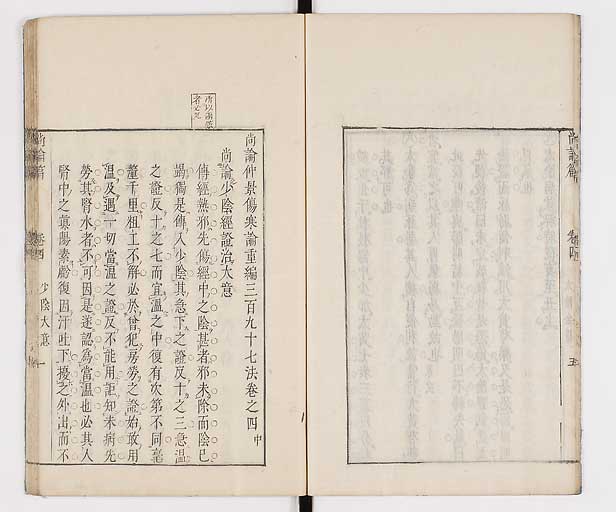 尚論仲景傷寒論重編三百九十七法卷之四 中
尚論少陰經證治大意
傳經熱邪先傷經中之陰甚者邪未除而陰已
竭獨是傳入少陰其急下之證反十之三急溫
之證反十之七而宜溫之中復有次第不同毫
釐千里粗工不解必於曾犯房勞之證始敢用
溫及遇一切當溫之證反不能用詎知未病先
勞其腎水者不可因是遂認為當溫也必其人
腎中之眞陽素虧復因汗吐下擾之外出而不
尚論篇 卷四 少陰大意 一
尚論篇 卷四 五